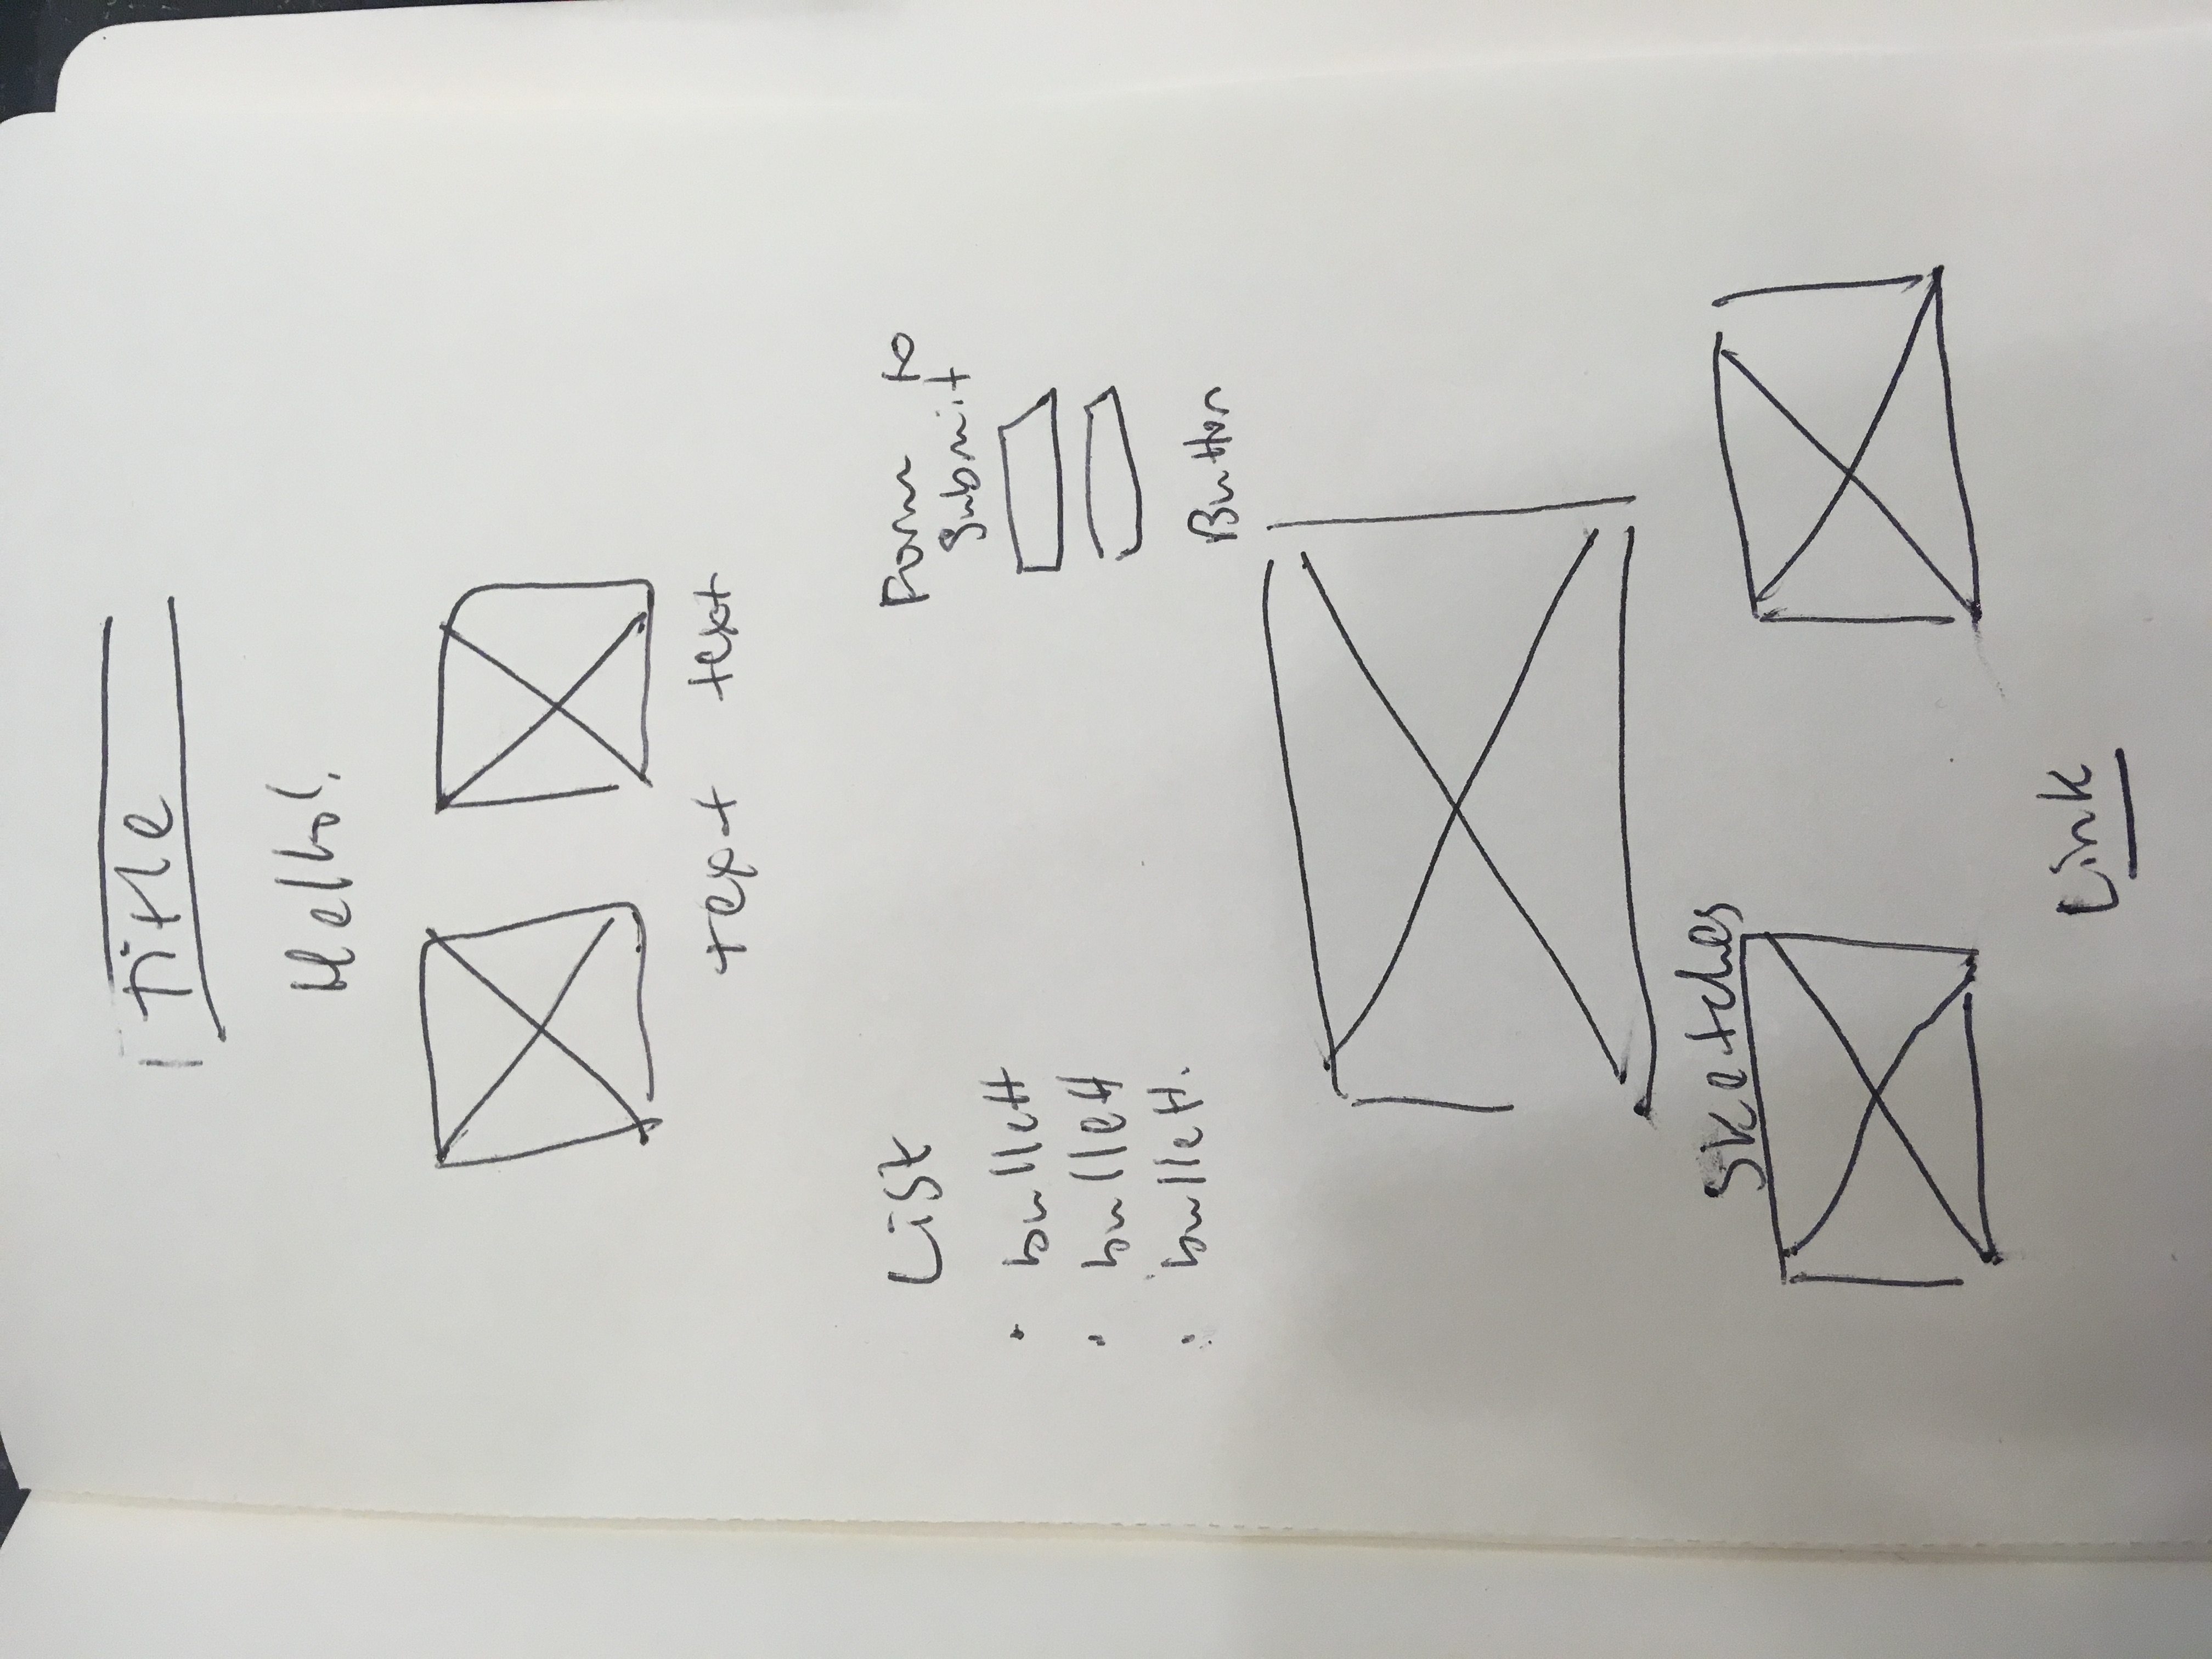 Title
Hello!
text text
List
bullett
bullett
bullett.
Form to
Submit
Button
Sketches
Link